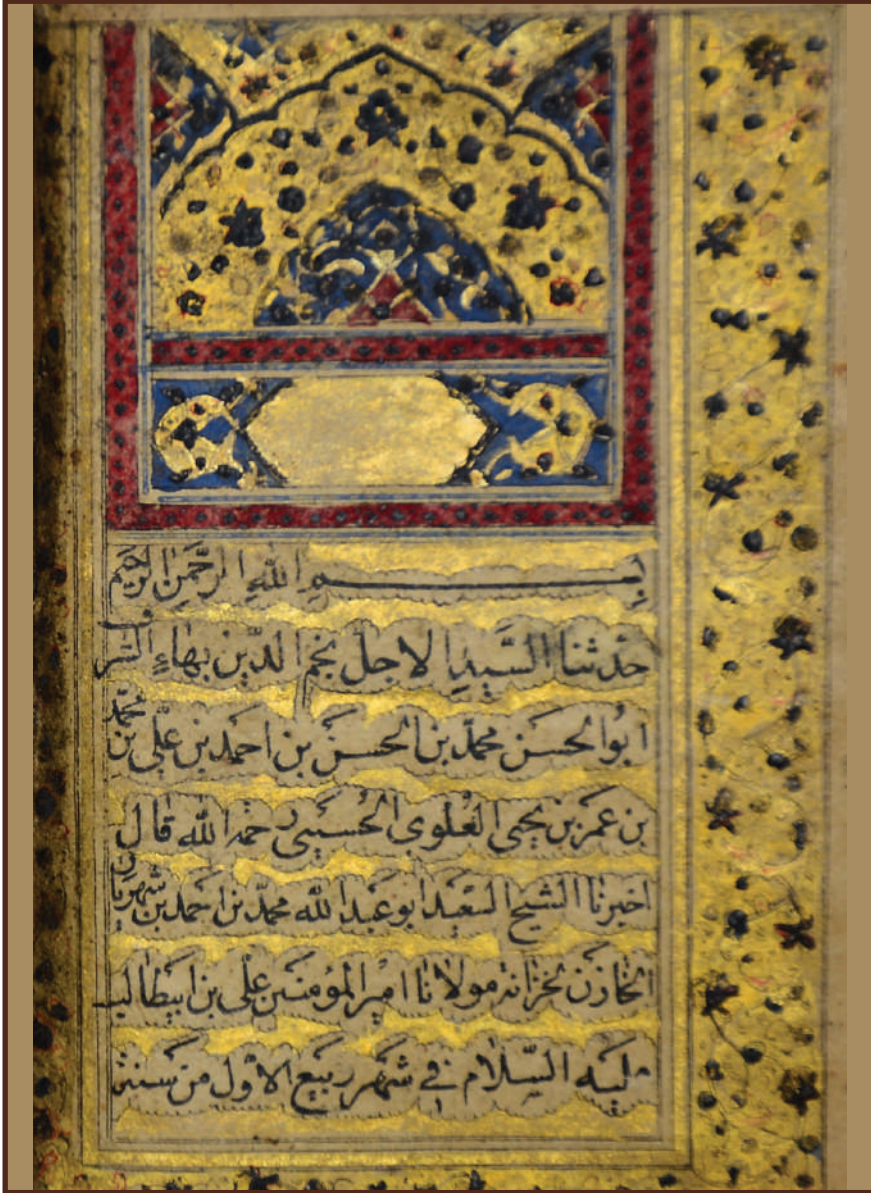 بِسْمِ اللهِ الرَّحْمٰنِ الرَّحِيْمِ
حدثنا السَّيِّدُ الاجل نجم الدّين بهاءِ الشرف
ابُو الحسَن محمّد بن الحسَن بن احمَد بن علّى بن محمّد
بن عمَر بن يحيى العَلوى الحُسَينى رحمه الله قال
اخبرنا الشيخ السّعيد ابو عبَد الله محمّد بن احمَد بن شهريار
الخازن لخزانة مولانا امير المؤمنين على بن ابيطالب
عليه السّلام فے شهر ربيع الاوّل من سنة